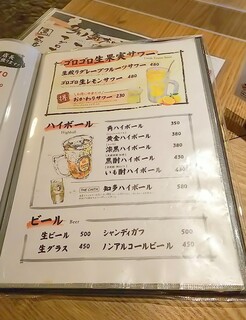 ゴロゴロ生果実サワー
生搾りグレープフルーツサワー 480
ゴロゴロ生レモンサワー 480
おかわりサワー 230
ハイボール
Highball
角ハイボール 350
黄金ハイボール 380
凉黒ハイボール 380
黒酎ハイボール 380
いも酎ハイボール 380
THE CHITA 知多ハイボール 580
ビール Beer
生ビール 500 シャンディガフ 500
生グラス 450 ノンアルコールビール 450